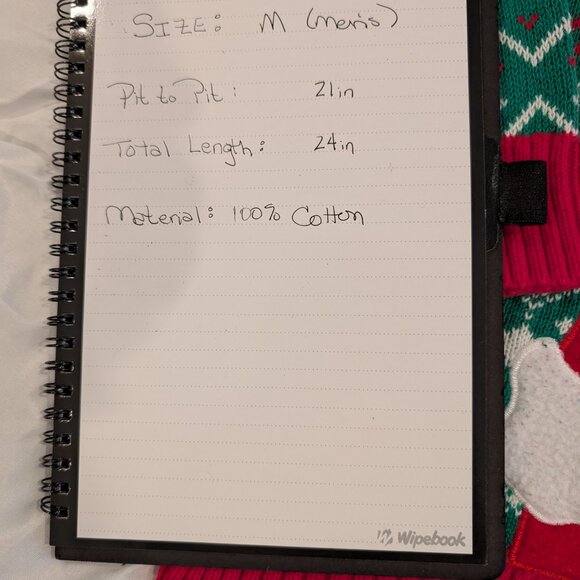 SIZE: M (men's)
Pit to Pit: 21in
Total Length: 24in
Material: 100% Cotton
Wipebook